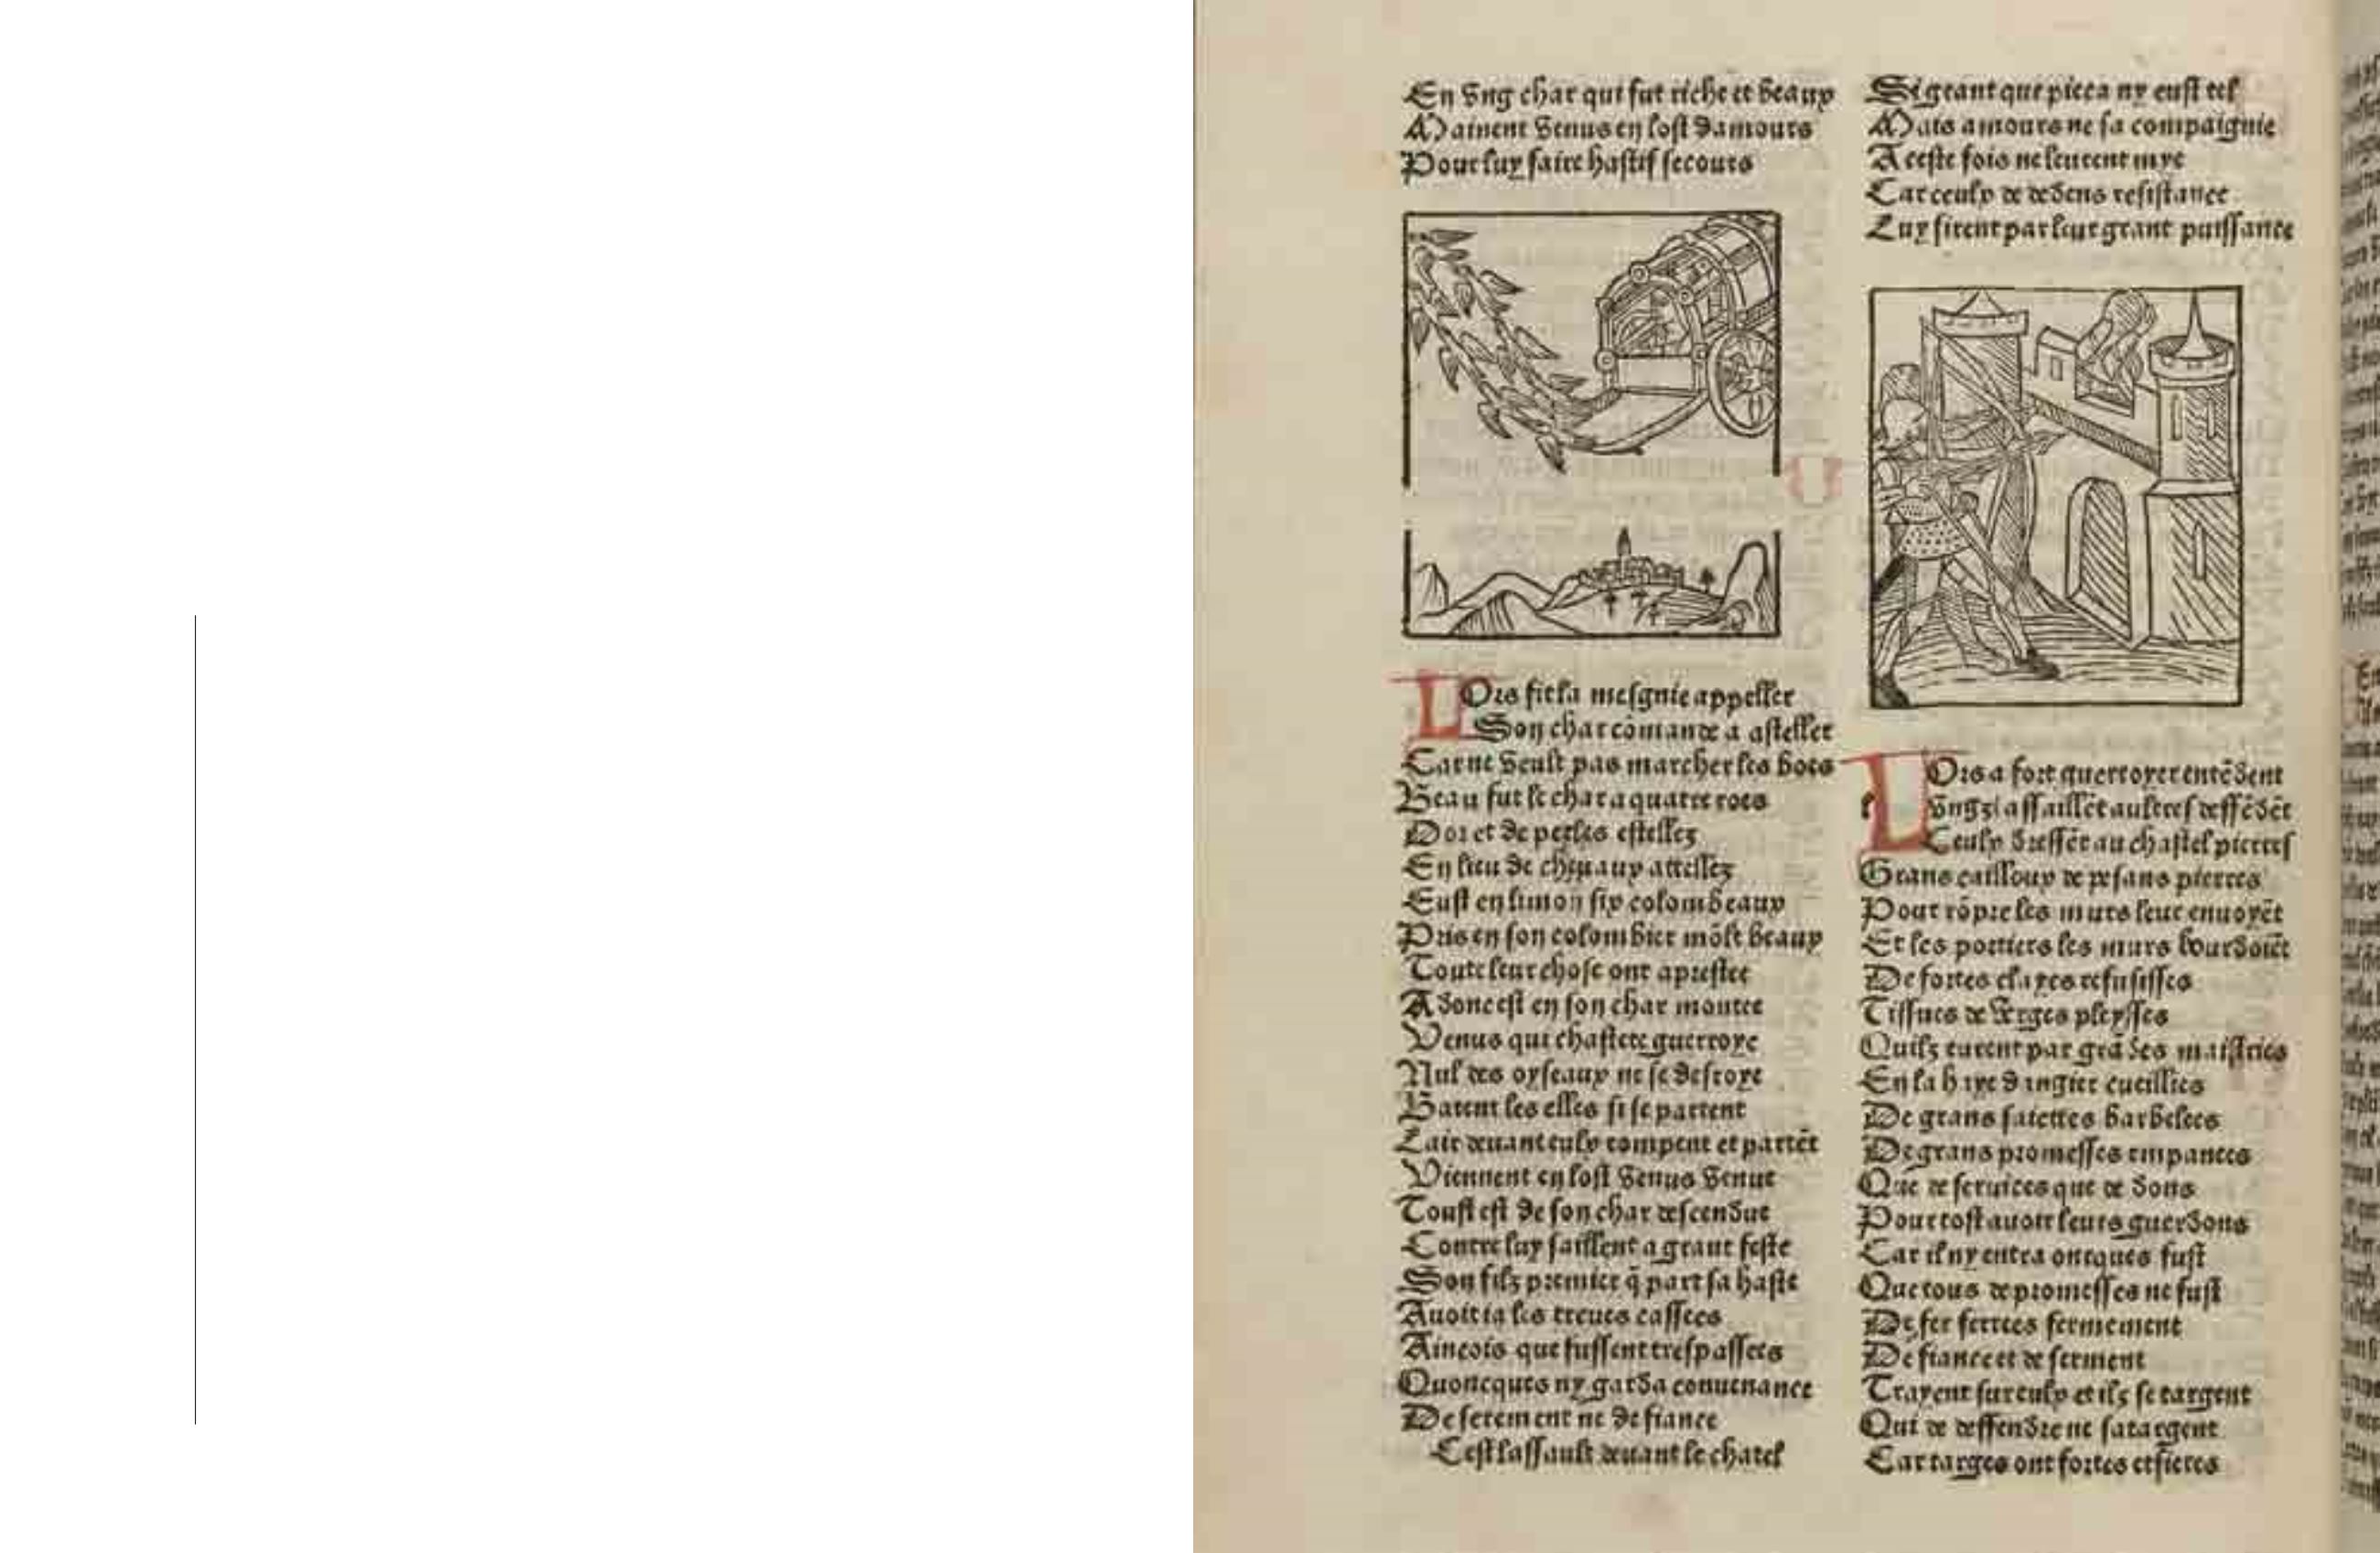 En vng char qui fut riche et beaux
Mainent venus en lost damours
Pour luy faire hastif secours
LOrs fit sa mesgnie appeller
Son char cōmande a asteller
Car ne veult pas marcher les boes
Beau fut le char a quatre roes
Dor et de perles estellez
En lieu de cheuaux attellez
Eust en limon six colombeaux
Pris en son colombier mōlt beaux
Toute leur chose ont aprestee
Adonc est en son char montee
Venus qui chastete guerroye
Nul des oyseaux ne se desroye
Batent les elles si se partent
Lair deuant eulx rompent et partēt
Viennent en lost venus venue
Toust est de son char descendue
Contre luy saillent a grant feste
Son filz premier q̄ part sa haste
Auoit ia les treues cassees
Aincois que fussent trespassees
Quoncques ny garda conuenance
De serement ne de fiance
Cest lassault deuant le chatel
Si geant que pieca ny eust tel
Mais amours ne sa compaignie
A ceste fois ne leurent mye
Car ceulx de dedens resistance
Luy firent par leur grant puissance
LOrs a fort guerroyer entēdent
l vngz assaillēt aultres deffēdēt
Ceulx dressēt au chastel pierres
Grans cailloux de pesans pierres
Pour rōpre les murs leur enuoyēt
Et les portiers les murs bourdoiēt
De fortes clayes refusisses
Tissues de verges pleysses
Quilz eurent par grādes maistries
En la haye dangier cueillies
De grans saiettes barbelees
De grans promesses empanees
Que de seruices que de dons
Pour tost auoir leurs guerdons
Car il ny entra oncques fust
Que tous de promesses ne fust
De fer ferrees fermement
De fiance et de serment
Trayent sur eulx et ilz se targent
Qui de deffendre ne satargent
Car targes ont fortes et fieres